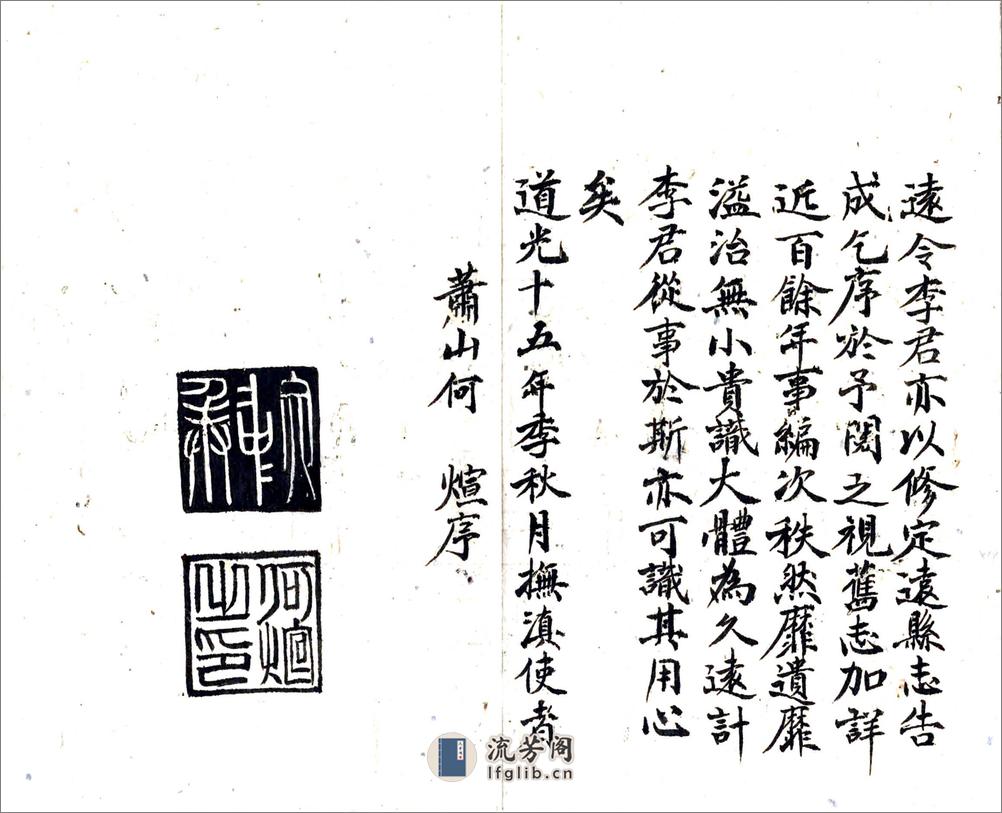 遠令李君亦以修定遠縣志告
成乞序於予閱之視舊志加詳
近百餘年事編次秩然靡遺靡
溢治無小貴識大體為久遠計
李君從事於斯亦可識其用心
矣
道光十五年季秋月撫滇使者
蕭山何 煊序
何煊之印
流芳阁
lfglib.cn